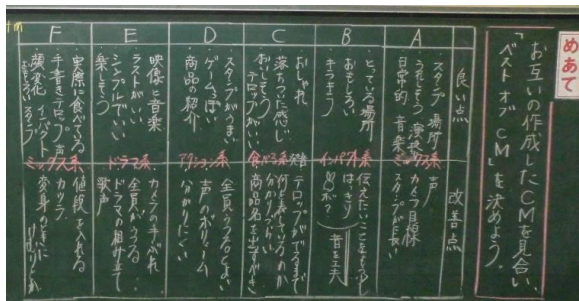 めあて
お互いの作成したCMを見合い、
「ベスト オブ CM」を決めよう。
良い点
改善点
A
スタンプ 場所
うれしそう 演技
日常的 音楽
ミックス系
声
カメラ目線
スタンプが長い
B
とっている場所
おもしろい
キラキラ
インパクト系
伝えたいことをもう少し
はっきり
音を工夫
C
おしゃれ
落ちついた感じ
おいしそう テロップがいい
食べる系
テロップがでるまで
何を表しているのか
分かりづらい
商品名を出すべき
D
スタンプがうまい
ゲームっぽい
商品の紹介
アクション系
全員がうつるとよい
声のボリューム
分かりにくい
E
映像と音楽
ラストがいい
シンプルでいい
楽しそう
ドラマ系
カメラの手ぶれ
全員がうつる
ドラマの組み立て
歌声
F
実際に食べてる
手書きテロップ 声
顔変化 インパクト
おもしろい スタンプ
ミックス系
値段を入れる
カツラ
変身のときに